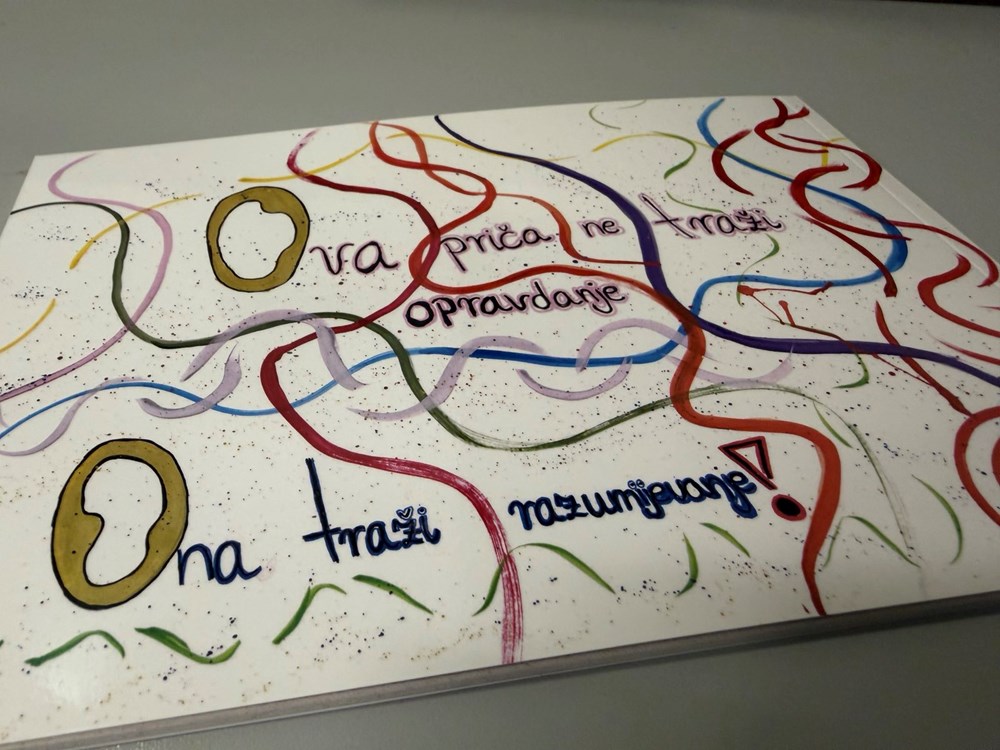 Ova priča ne traži
opravdanje
Ona traži razumjevanje!